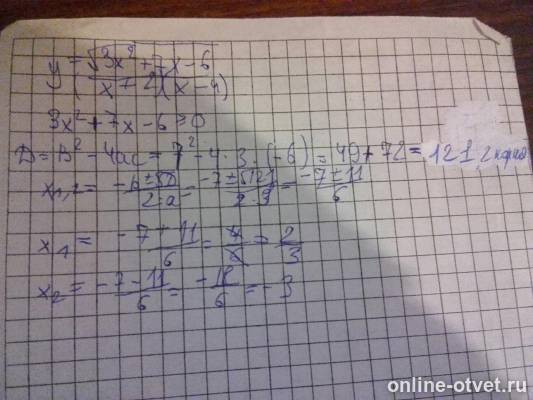 y = √3x² + 7x - 6
(x + 2)(x - 4)
3x² + 7x - 6 ≥ 0
D = B² - 4ac = 7² - 4 · 3 · (-6) = 49 + 72 = 121, 2 корня
x₁,₂ = -b ± √D / 2 · a = -7 ± √121 / 2 · 3 = -7 ± 11 / 6
x₁ = -7 + 11 / 6 = 4 / 6 = 2 / 3
x₂ = -7 - 11 / 6 = -18 / 6 = -3
online-otvet.ru